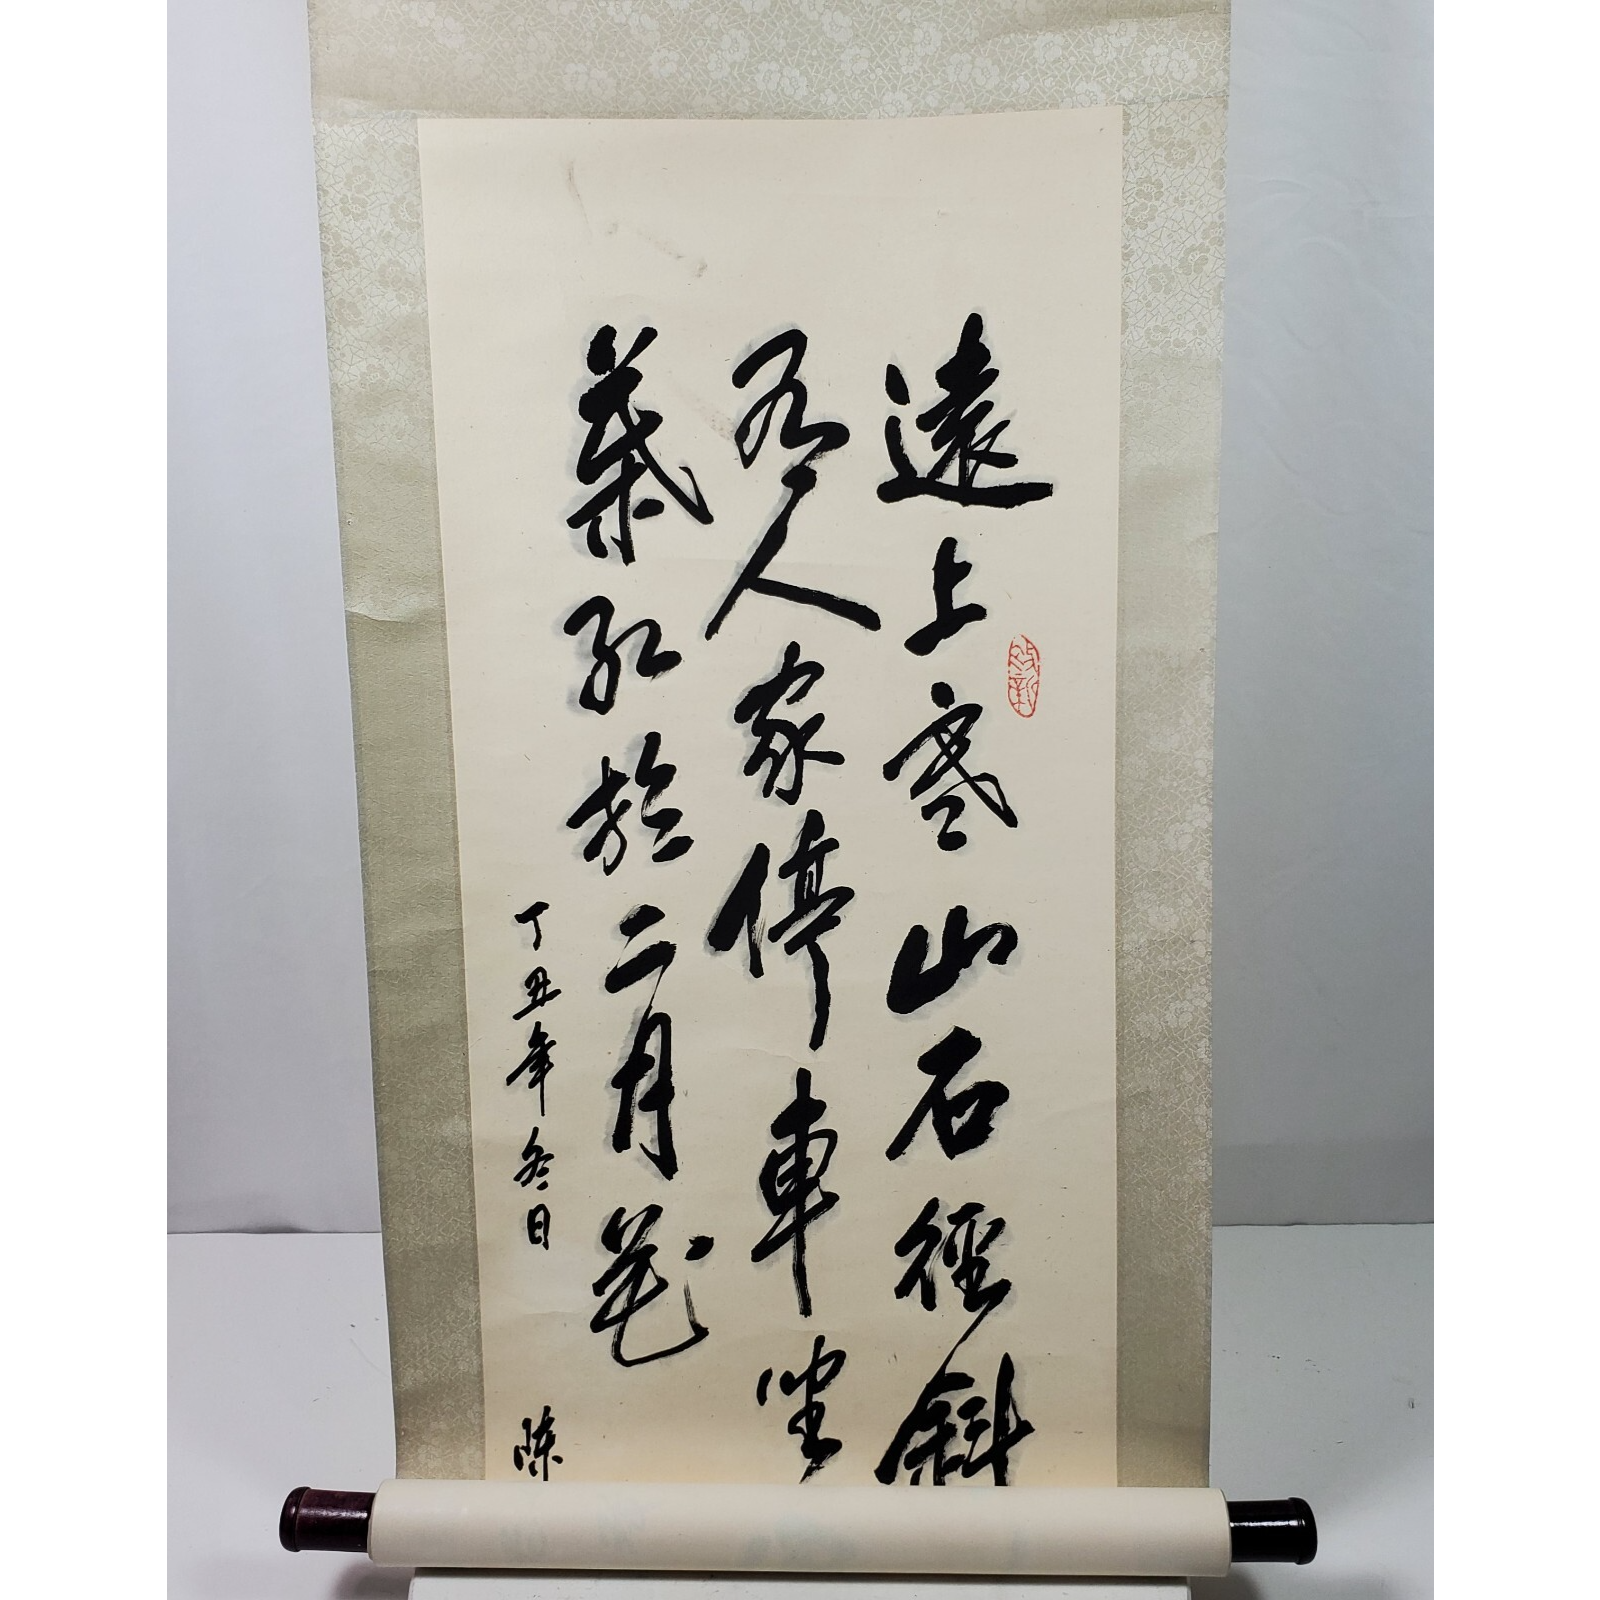 遠上寒山石徑斜
有人家停車坐
葉紅於二月花
丁丑年冬日 陳